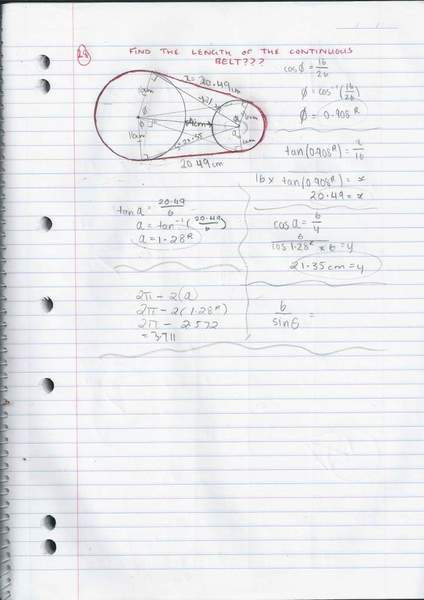 28
FIND THE LENGTH OF THE CONTINUOUS
BELT???
x = 20.49cm
20.49cm
cos φ = 16/26
φ = cos⁻¹(16/26)
φ = 0.908ᴿ
tan(0.908ᴿ) = x/16
16 x tan(0.908ᴿ) = x
20.49 = x
tan a = 20.49/6
a = tan⁻¹(20.49/6)
a = 1.28ᴿ
cos a = 6/y
21.35cm = y
2π - 2(a)
2π - 2(1.28ᴿ)
2π - 2.572
= 3.711
b/sinθ =